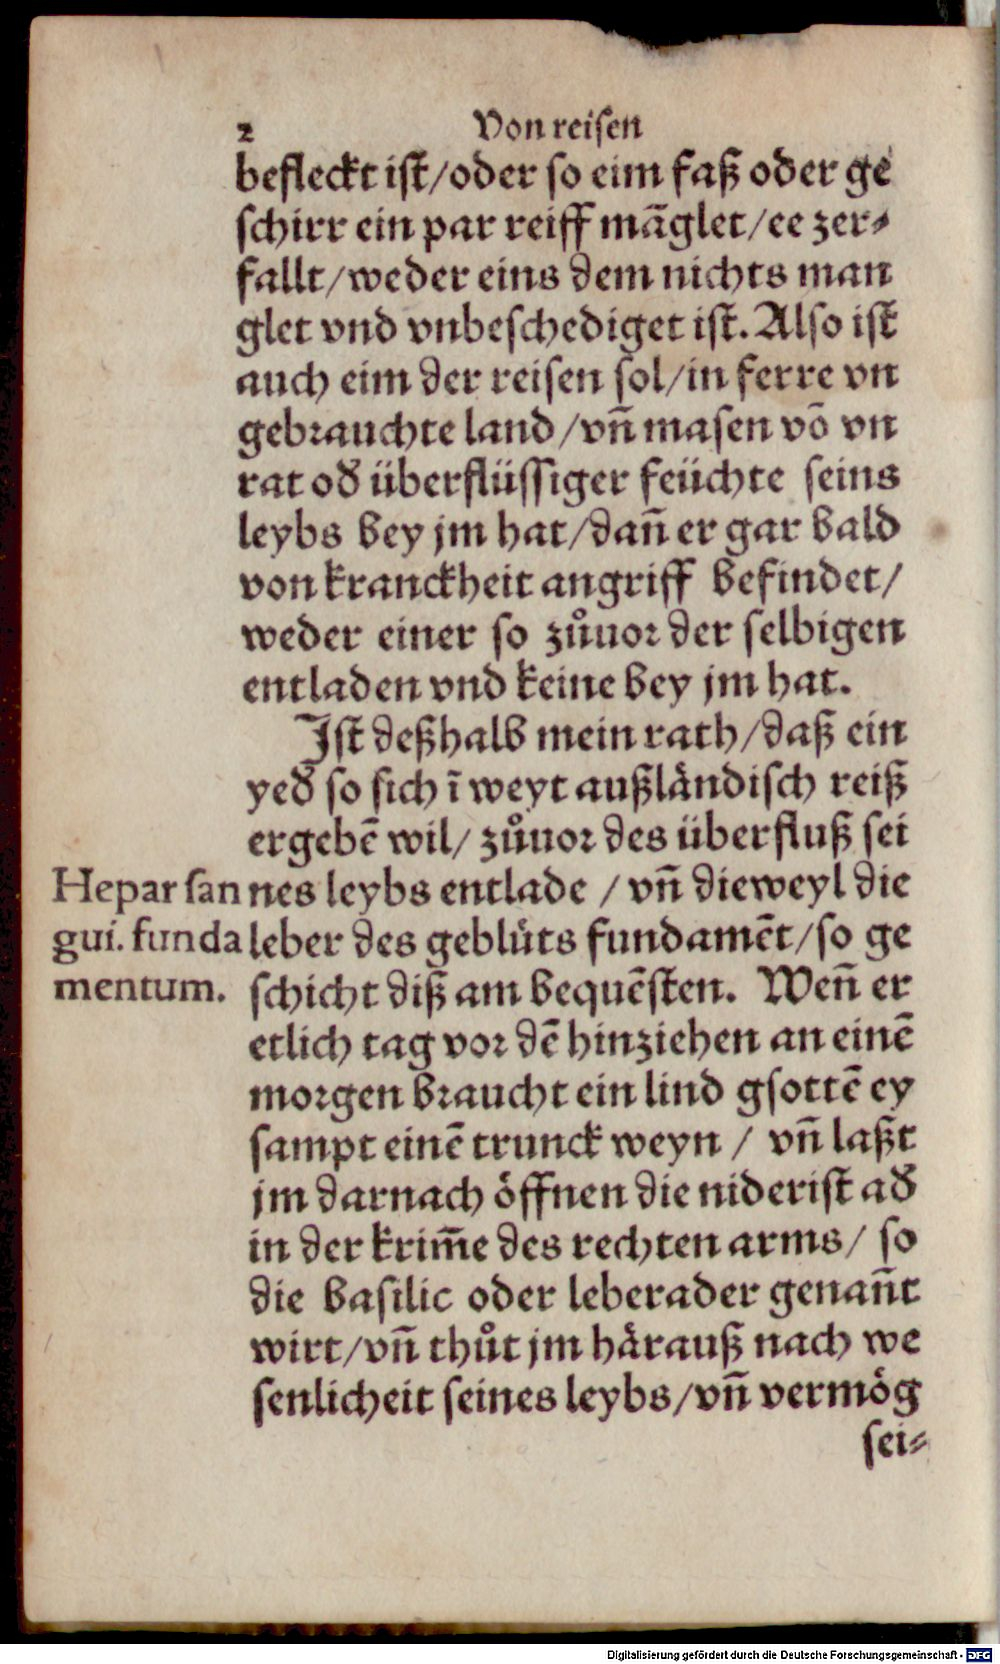 2 Von reisen
befleckt ist/oder so eim faß oder ge
schirr ein par reiff mãglet/ee zer⸗
fallt/weder eins dem nichts man
glet vnd vnbeschediget ist. Also ist
auch eim der reisen sol/in ferre vn
gebrauchte land/vñ masen võ vn
rat od̃ überflüssiger feüchte seins
leybs bey jm hat/dañ er gar bald
von kranckheit angriff befindet/
weder einer so zůuor der selbigen
entladen vnd keine bey jm hat.
Ist deßhalb mein rath/daß ein
yed̃ so sich ĩ weyt außländisch reiß
ergebẽ wil/ zůuor des überfluß sei
nes leybs entlade / vñ dieweyl die
leber des geblüts fundamẽt/so ge
schicht diß am bequẽsten. Weñ er
etlich tag vor dẽ hinziehen an einẽ
morgen braucht ein lind gsottẽ ey
sampt einẽ trunck weyn / vñ laßt
jm darnach öffnen die niderist ad̃
in der krim̃e des rechten arms/ so
die basilic oder leberader genañt
wirt/vñ thůt jm härauß nach we
senlicheit seines leybs/vñ vermög
sei⸗
Hepar san
gui. funda
mentum.
Digitalisierung gefördert durch die Deutsche Forschungsgemeinschaft - DFG